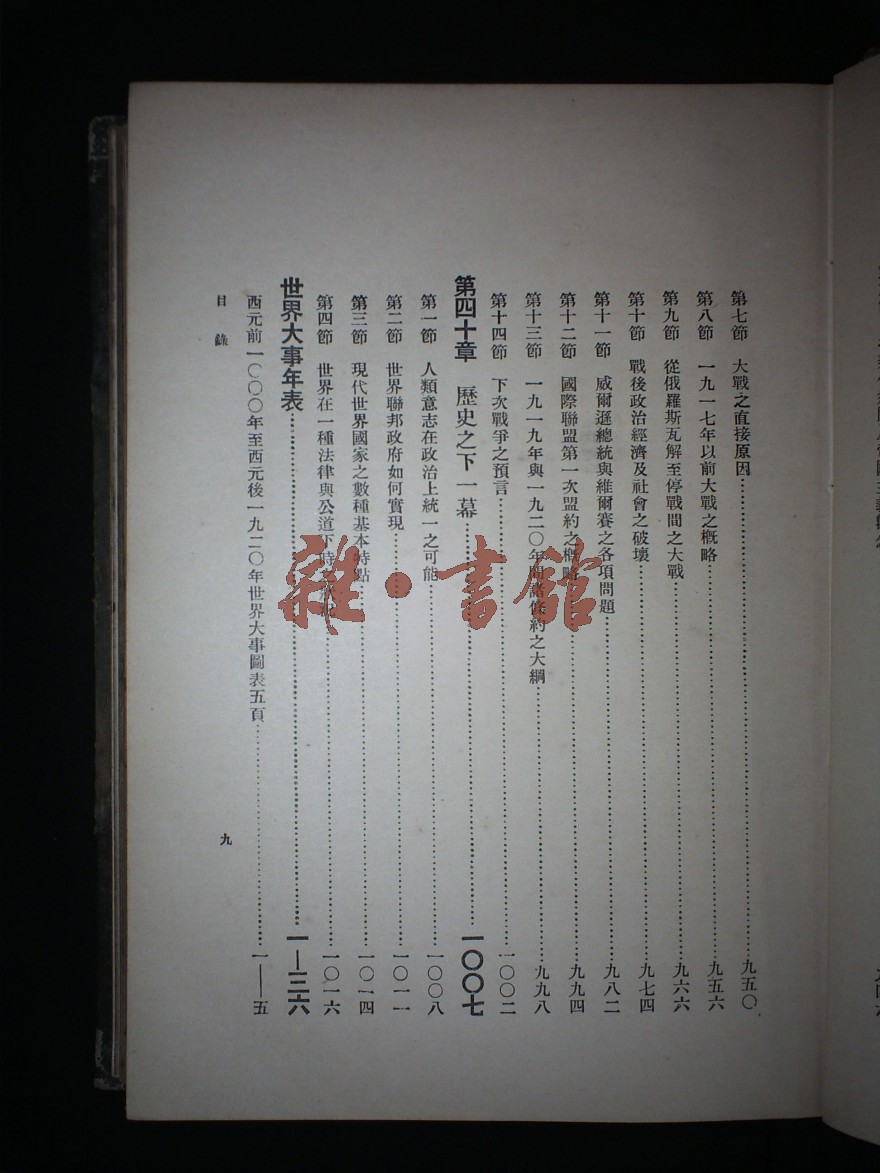 第七節　大戰之直接原因……九五〇
第八節　一九一七年以前大戰之概略……九五六
第九節　從俄羅斯瓦解至停戰間之大戰……九六六
第十節　戰後政治經濟及社會之破壞……九七四
第十一節　威爾遜總統與維爾賽之各項問題……九八二
第十二節　國際聯盟第一次盟約之概略……九九四
第十三節　一九一九年與一九二〇年間諸條約之大綱……九九八
第十四節　下次戰爭之預言……一〇〇二
第四十章　歷史之下一幕……一〇〇七
第一節　人類意志在政治上統一之可能……一〇〇八
第二節　世界聯邦政府如何實現……一〇一一
第三節　現代世界國家之數種基本特點……一〇一四
第四節　世界在一種法律與公道下時……一〇一六
世界大事年表……一—三六
西元前一〇〇〇年至西元後一九二〇年世界大事圖表五頁……一——五
目錄　九
雜·書館